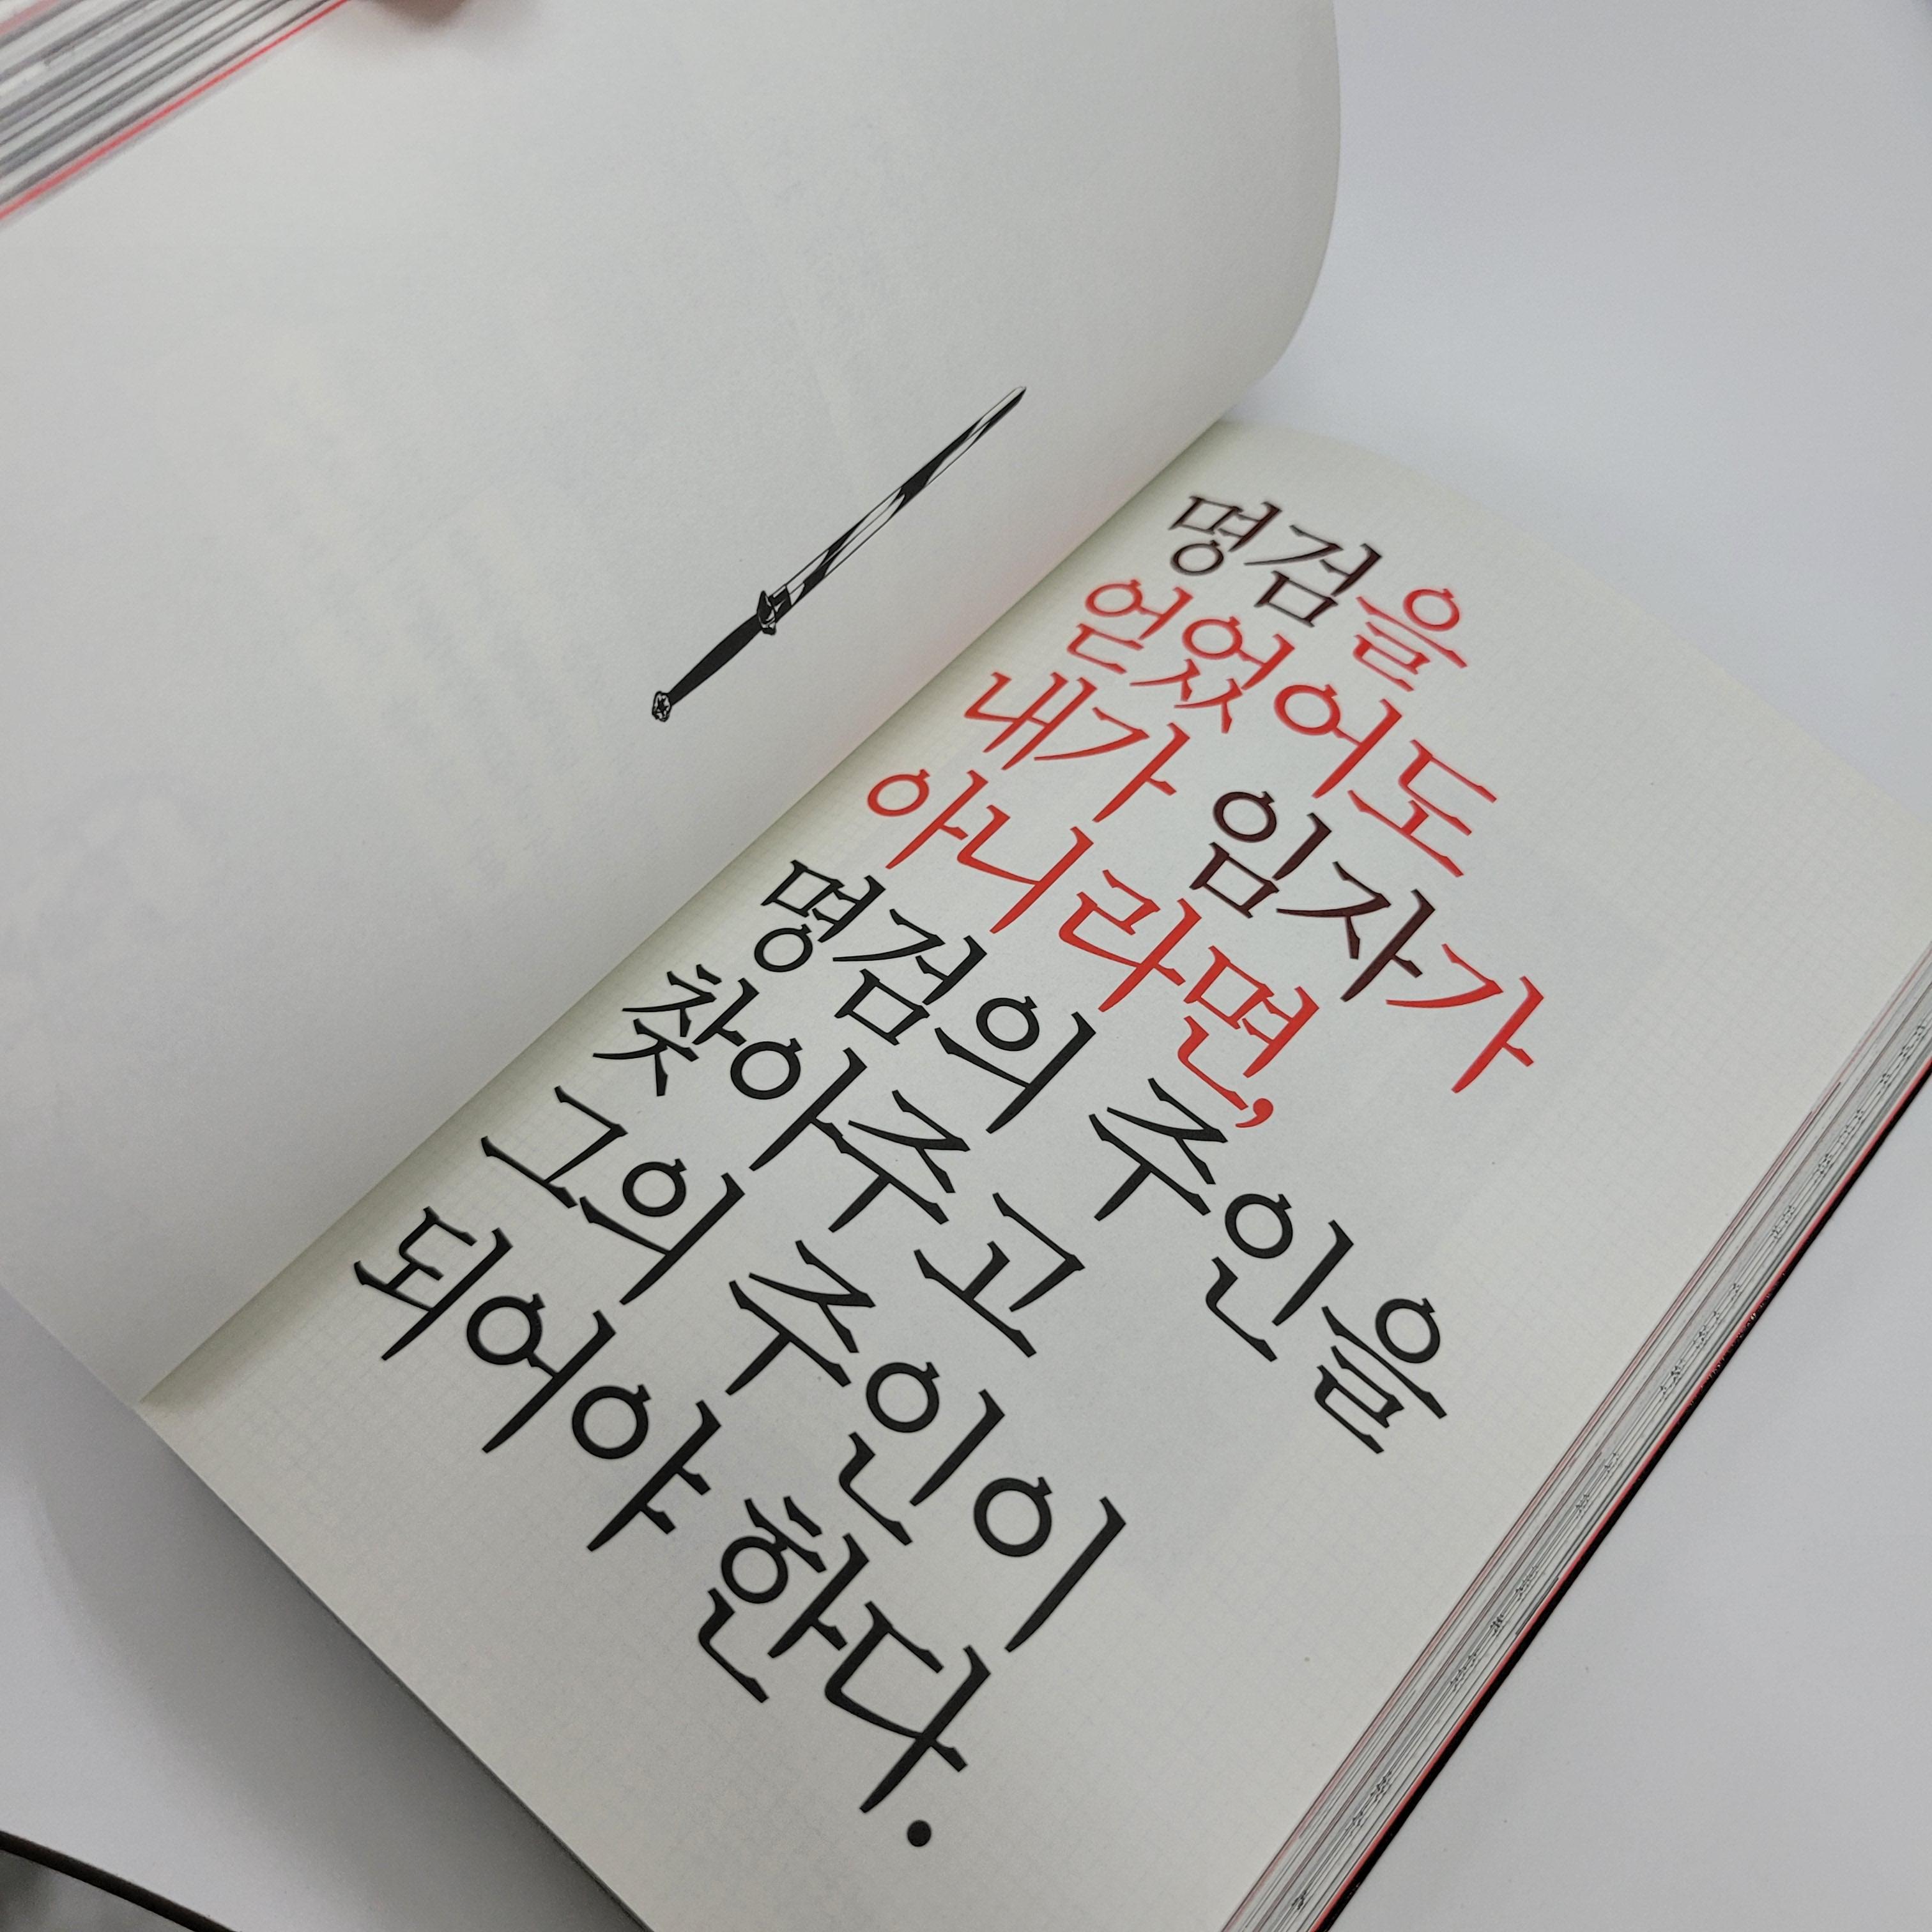 명검을
얻었어도
내가 임자가
아니라면,
명검의 주인을
찾아주고
그의 주인이
되어야 한다.